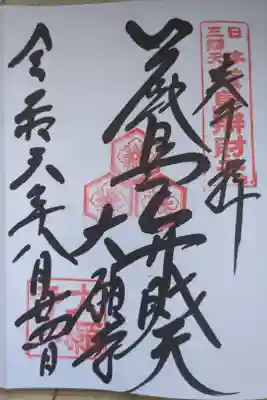 日本
三辨天
奉拝
厳島弁財天
大願寺
令和元年八月廿四日